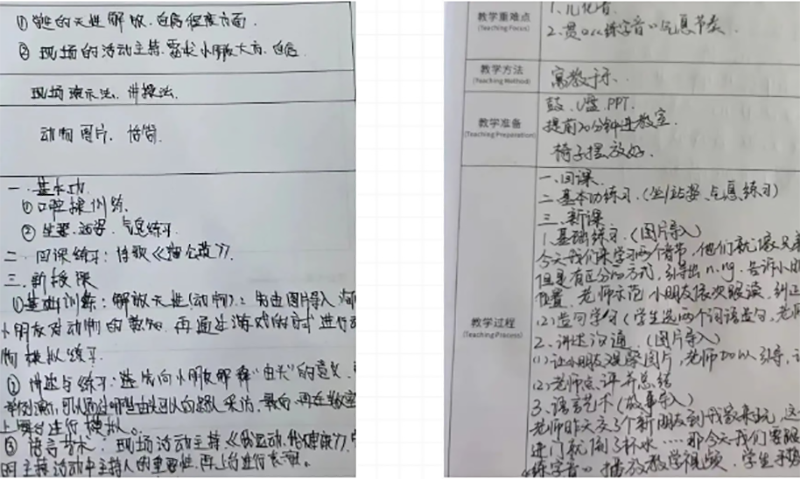 ①
的天性解放、
② 现场的活动主持,需求小朋友大方、自信
现场演示法、讲授法.
动物图片、
一. 基本功.
①口腔操训练.
② 坐姿、站姿、气息练习.
二. 回课练习: 诗歌
三. 新授课
①基础训练: 解放天性(动物).: 先由图片导入
小朋友对动物的 再通过游戏的方式进行
模拟练习.
② 讲述与练习: 向小朋友解释 的意义
上舞台进行模拟.
③ 语言艺术: 现场活动主持
主持活动中主持人的重要性,再上台进行表演.
教学重难点
(Teaching Focus)
1.儿化音
2.贯口《练字音》气息节奏
教学方法
(Teaching Method)
寓教于乐.
教学准备
(Teaching Preparation)
鼓.U盘.PPT.
提前20分钟进教室
椅子摆放好.
教学过程
(Teaching Process)
一.回课.
二.基本功练习.(坐/站姿、气息练习)
三.新课
1.基础练习.(图片导入)
今天我们来学习两个音节,他们
但是有区分的方式,引导出n.ng.告诉小朋
位置.老师示范 小朋友依次跟读,纠正
(2)造句学习(学生选两个词语造句,老师
2.讲述沟通.(图片导入)
(1)让小朋友观察图片,老师加以引导,
(2)老师点评并总结
3.语言艺术(故事导入)
老师昨天交了个新朋友到我家来玩,这
进门就倒了杯水……那今天我们要
练字音》播放教学视频.学生